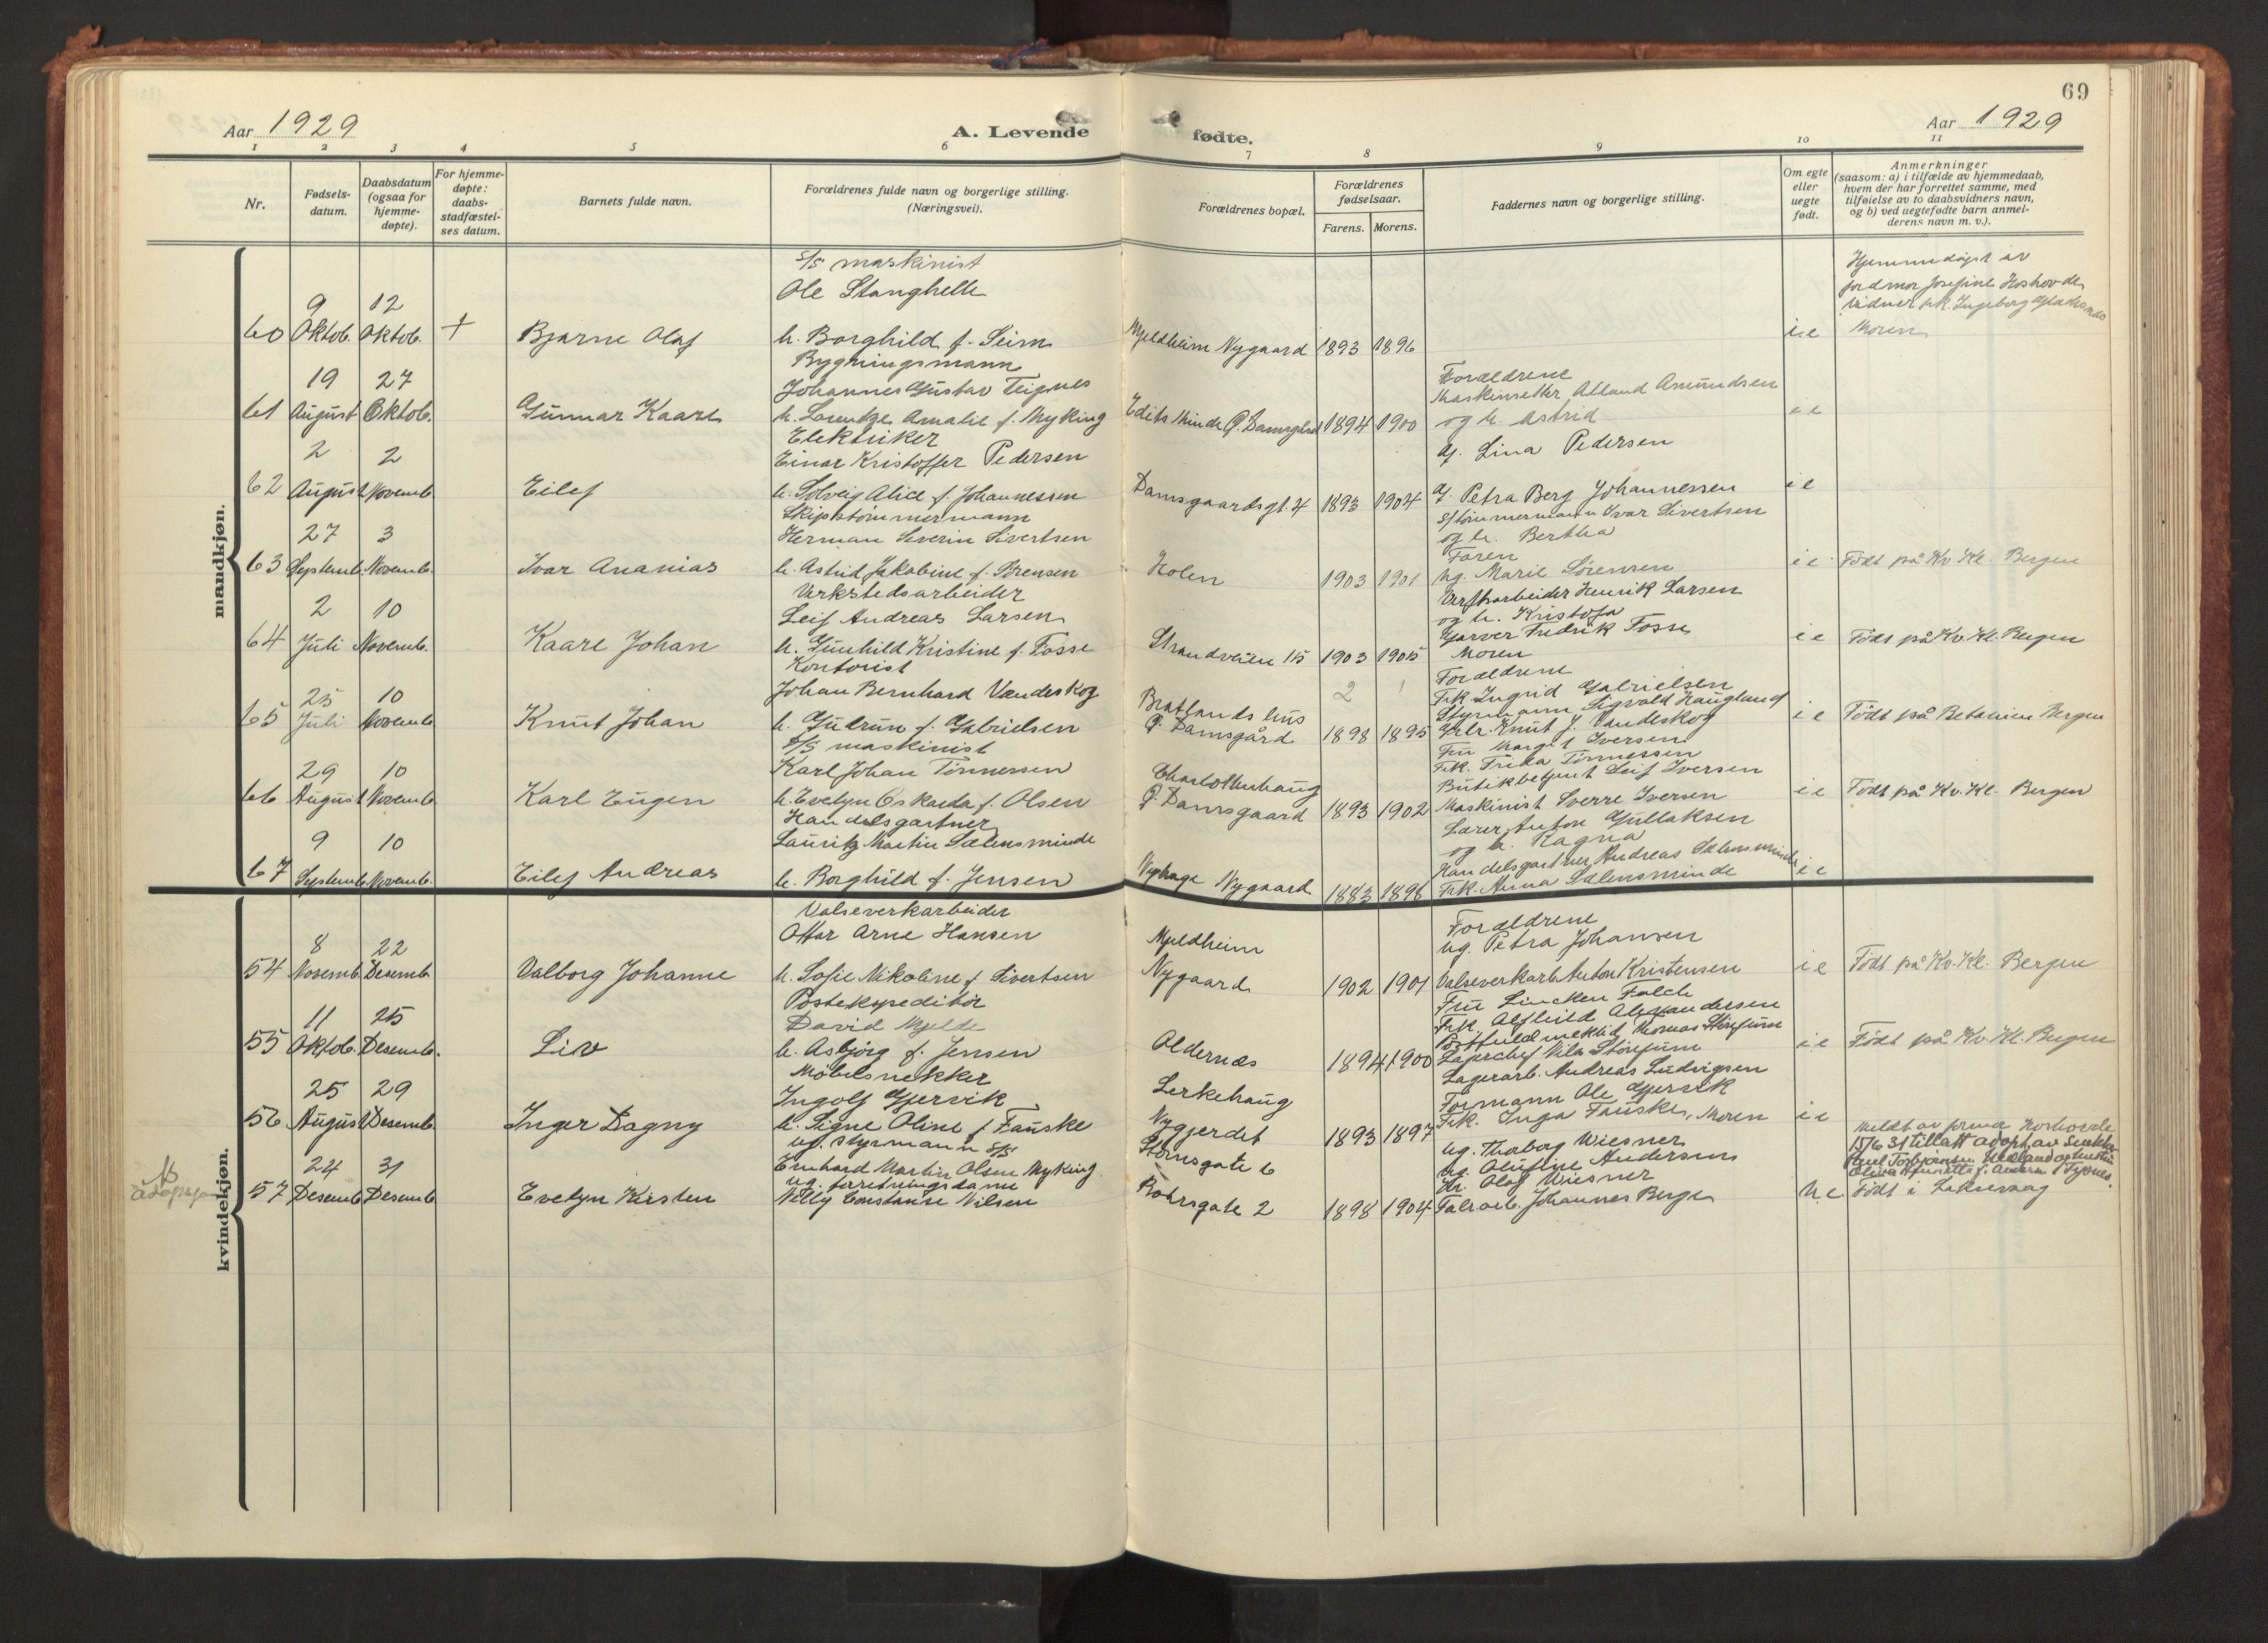 69
Aar 1929
A. Levende
fødte.
Aar 1929
1 2 3 4 5 6 7 8 9 10 11
Nr.
Fødsels-
datum.
Daabsdatum
(ogsaa for
hjemme-
døpte).
For hjemme-
døpte:
daabs-
stadfæstel-
ses datum.
Barnets fulde navn.
Forældrenes fulde navn og borgerlige stilling.
(Næringsvei).
Forældrenes bopæl.
Forældrenes
fødselsaar.
Farens. Morens.
Faddernes navn og borgerlige stilling.
Om egte
eller
uegte
født.
Anmerkninger
(saasom: a) i tilfælde av hjemmedaab,
hvem der har forrettet samme, med
tilføielse av to daabsvidners navn,
og b) ved uegtefødte barn anmel-
derens navn m. v.).
mandkjøn.
60
9
Oktob.
12
Oktob.
+
Bjarne Olaf
S/S maskinist
Ole Stanghelle
h. Borghild f. Seim
Mjeldheim Nygaard
1893 1896
i e
Hjemmedøpt av
jordmor Josefine
vidner frk. Ingeborg
Moren
61
19
August
27
Oktob.
Gunnar Kaare
Bygningsmann
Johannes Gustav Teignes
h. Lorentze Amalie f. Myking
Edits Minde G. Damsgård
1894 1900
Forældrene
Maskinsetter Alland Amundsen
og h. Astrid
i e
62
2
August
2
Novemb.
Eilef
Elektriker
Einar Kristoffer Pedersen
h. Solveig Alice f. Johannessen
Damsgaardsgt. 4
1893 1904
G. Lina Pedersen
G. Petra Berg Johannessen
S/tømmermann Ivar Sivertsen
og h. Bertha
i e
63
27
Septemb.
3
Novemb.
Ivar Ananias
Skipstømmermann
Herman Severin Sivertsen
h. Astrid Jakobine f. Sørensen
Holen
1903 1901
Faren
ug. Marie Sørensen
i e
Født på Kv. Kl. Bergen
64
2
Juli
10
Novemb.
Kaare Johan
Verkstedsarbeider
Leif Andreas Larsen
h. Gunhild Kristine f. Fosse
Strandveien 115
1903 1905
Verftsarbeider Henrik Larsen
og h. Kristofa
Garver Fredrik Fosse
Moren
i e
Født på Kv. Kl. Bergen
65
25
Juli
10
Novemb.
Knut Johan
Kontorist
Johan Bernhard Vandeskog
h. Gudrun f. Gabrielsen
Bratlands hus
G. Damsgård
2 1
1898 1895
Forældrene
Frk. Ingrid Gabrielsen
Styrmann Sigvald Haugland
Knut J. Vandeskog
i e
Født på Betanien Bergen
66
29
August
10
Novemb.
Karl Eugen
S/S maskinist
Karl Johan Tønnessen
h. Evelyn Oskarda f. Olsen
Charlottenhaug
G. Damsgaard
1893 1902
Fru Margit Iversen
Frk. Frida Tønnessen
Butikbetjent Leif Iversen
Maskinist Sverre Iversen
i e
Født på Kv. Kl. Bergen
67
9
Septemb.
10
Novemb.
Eilef Andreas
Handelsgartner
Lauritz Martin Sælensminde
h. Borghild f. Jensen
Nyhage Nygaard
1883 1898
Lærer Anton Gullaksen
og h. Ragna
Handelsgartner Andreas Sælensminde
Frk. Anna Sælensminde
i e
kvindekjøn.
54
8
Novemb.
22
Desemb.
Valborg Johanne
Valseverkarbeider
Ottar Arne Hansen
h. Sofie Nikoline f. Sivertsen
Mjeldheim
Nygaard
1902 1901
Forældrene
ug. Petra Johansen
Valseverkarb. Anton Kristensen
i e
Født på Kv. Kl. Bergen
55
11
Oktob.
25
Desemb.
Liv
Postekspeditør
David Mjelde
h. Asbjørg f. Jensen
Aldernæs
1894 1900
Fru Lincken Falch
Frk. Alfhild Alexandersen
Postfuldmektig Thomas Storjum
Lagerchef Nils Storjum
i e
Født på Kv. Kl. Bergen
56
25
August
29
Desemb.
Inger Dagny
Møbelsnekker
Ingolf Gjervik
h. Signe Oline f. Fauske
Lerkehaug
Nygjerdet
1893 1897
Lagerarb. Andreas Ludvigsen
Formann Ole Gjervik
Frk. Inga Fauske, Moren
i e
adopsjon
57
24
Desemb.
31
Desemb.
Evelyn Kirsten
ug. styrmann S/S
Enhard Martin Olsen Myking
ug. forretningsdame
Nelly Constanse Nilsen
Stornsgate 6
Rohrsgate 2
1898 1904
ug. Thoborg Wiesner
ug. Olufine Andersen
Hr. Olaf Wiesner
Fabr. arb. Johannes Berge
u e.
Meldt av
15/6 31 tillatt adopt. av
Født i Laksevaag